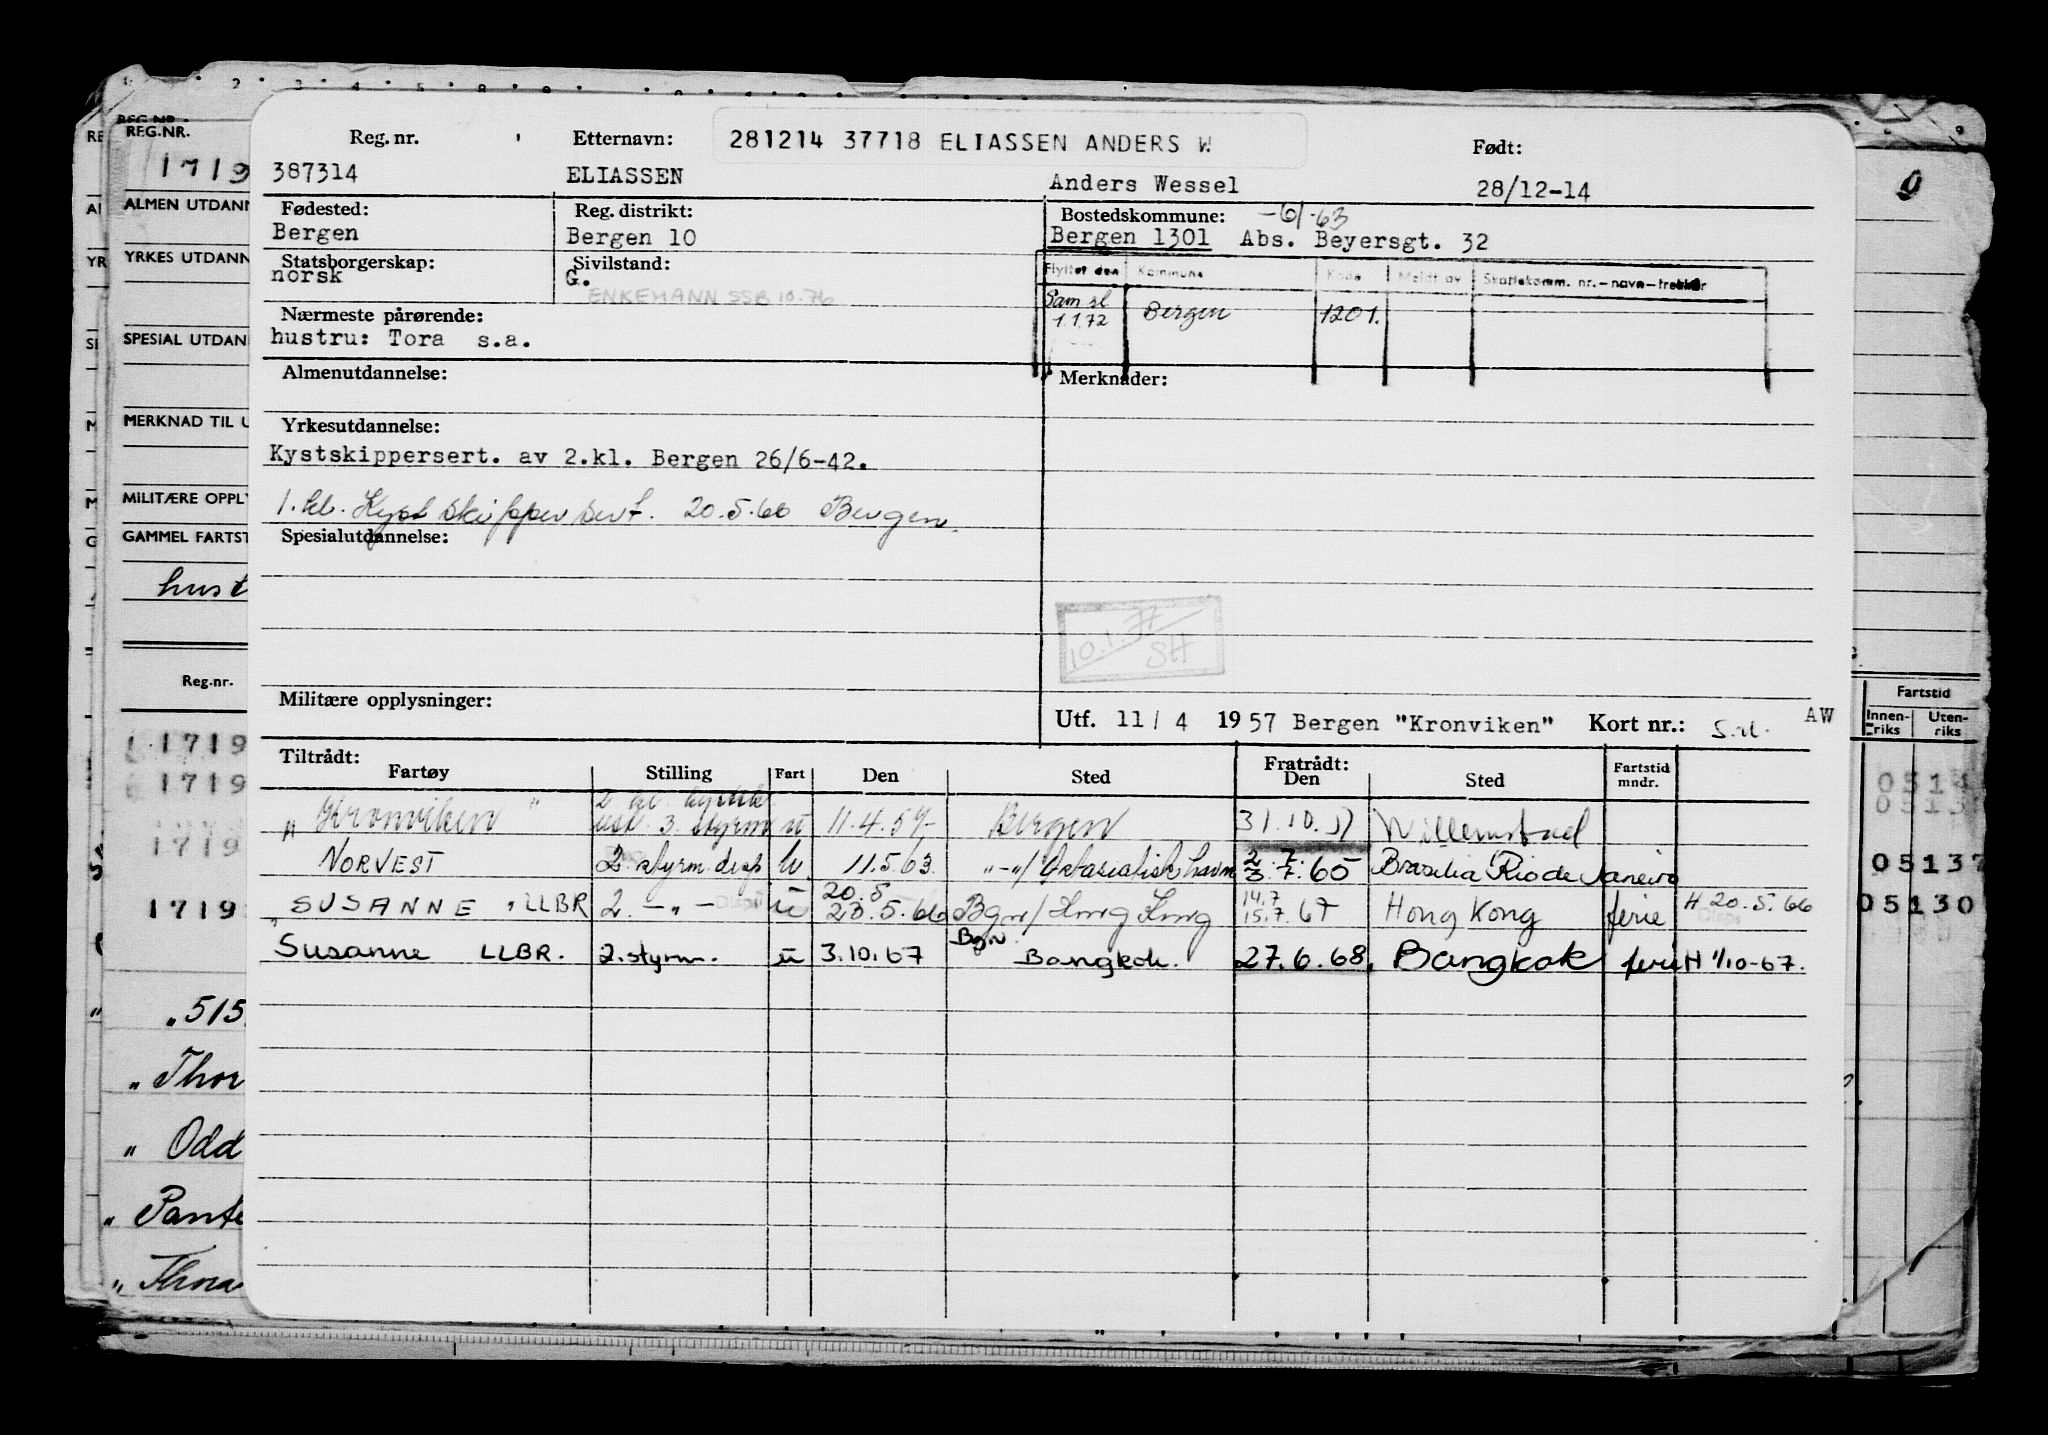 REG.NR.
1719
ALMEN UTDAN
YRKES UTDANN
SPESIAL UTDAN
MERKNAD TIL U
MILITÆRE OPPLY
GAMMEL FARTST
hust
Reg.nr.
1719
1719
1719
1719
515
Thor
Odd
Pante
Reg. nr. Etternavn: 281214 37718 ELIASSEN ANDERS W Født:
387314 ELIASSEN Anders Wessel 28/12-14
Fødested: Reg. distrikt: Bostedskommune: -6/-63
Bergen Bergen 10 Bergen 1301 Abs. Beyersgt. 32
Statsborgerskap: Sivilstand:
norsk G.
ENKEMANN SSB 10.76
Flyttet den Kommune Kode Meldt av Skattekomm. nr.-navn-trekkår
Sam.sl. 1.1.72 Bergen 1201.
Nærmeste pårørende:
hustru: Tora s.a.
Almenutdannelse: Merknader:
Yrkesutdannelse:
Kystskippersert. av 2.kl. Bergen 26/6-42.
1. kl. Kystskippersert. 20.5.66 Bergen.
Spesialutdannelse:
10.1.77
SH
Militære opplysninger:
Utf. 11/4 1957 Bergen "Kronviken" Kort nr.: AW
Tiltrådt: Fratrådt:
Fartøy Stilling Fart Den Sted Den Sted Fartstid mndr.
Kronviken 3. styrm ü 11.4.57 Bergen 31.10.57 Willemstad
NORVEST 2. styrm. disp ü. 11.5.63. "-"/ Østasiatisk havn 2.7. 3.7.65 Brasilia Rio de Janeiro
" SUSANNE " LLBR 2. -"- Disp ü 20.5 23.5.66 Bgn/ Hong Kong 14.7 15.7.67 Hong Kong ferie H 20.5.66
Disps
Susanne LLBR. 2.styrm. ü 3.10.67 Bgn Bangkok. 27.6.68. Bangkok ferie H 1/10-67.
Fartstid
Innenriks Utenriks
0513
05137
05130